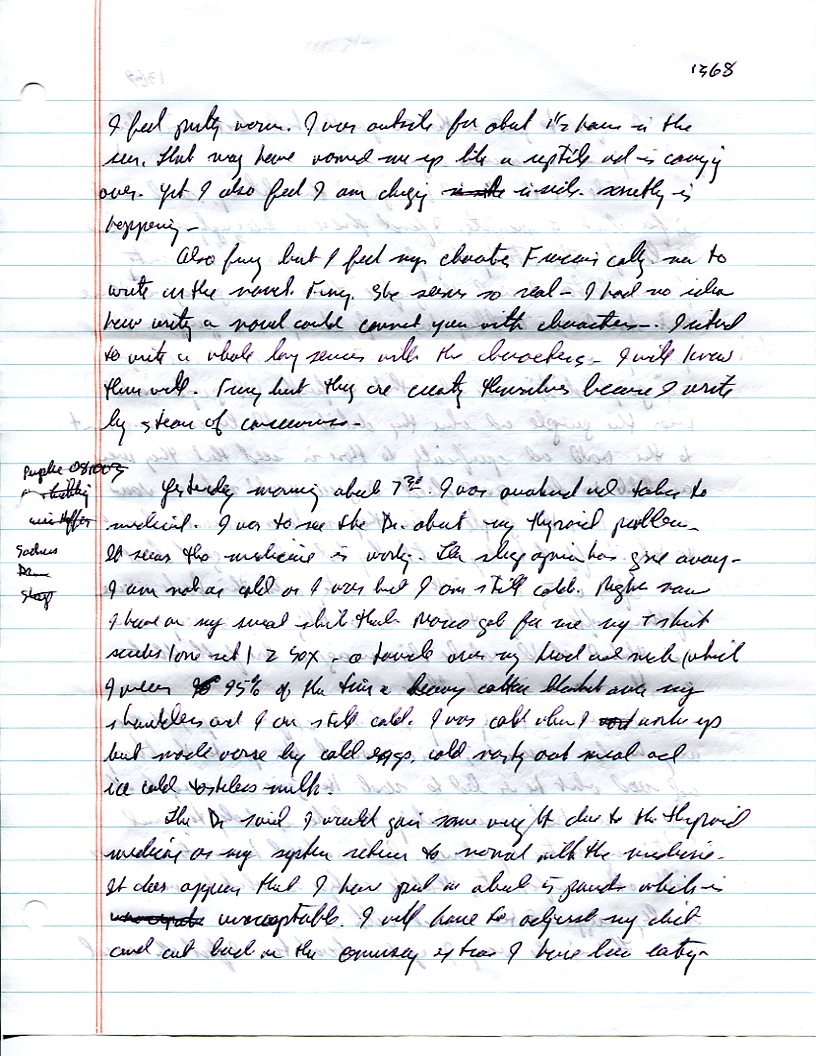 1368
I feel pretty warm. I was outside for about 1½ hours in the
sun. That may have warmed me up like a reptile and is carrying
over. Yet I also feel I am changing inside. Something is
happening -
Also funny but I feel my character calling me to
write on the novel. Funny. She seems so real - I had no idea
how writing a novel could connect you with characters -. I intend
to write a whole long series with the characters - I will know
them well. Funny but they are creating themselves because I write
by stream of consciousness -
Purple
Yesterday morning about 7 30. I was and taken to
medical. I was to see the Dr. about my thyroid problem.
Sadness
It seems the medicine is working. The sleep apnia has gone away -
I am not as cold as I was but I am still cold. Right now
I have on my sweat shirt that got for me my T shirt
sox - a towel over my head and neck (which
I wear 95% of the time a heavy cotton blanket over my
shoulders and I am still cold. I was cold when I woke up
but made worse by cold eggs, cold nasty oat meal and
ice cold tasteless milk.
The Dr said I would gain some weight due to the thyroid
medicine as my system returns to normal with the medicine.
It does appear that I have put on about 5 pounds which is
unacceptable. I will have to adjust my diet
and cut back on the commissary extras I have been eating -